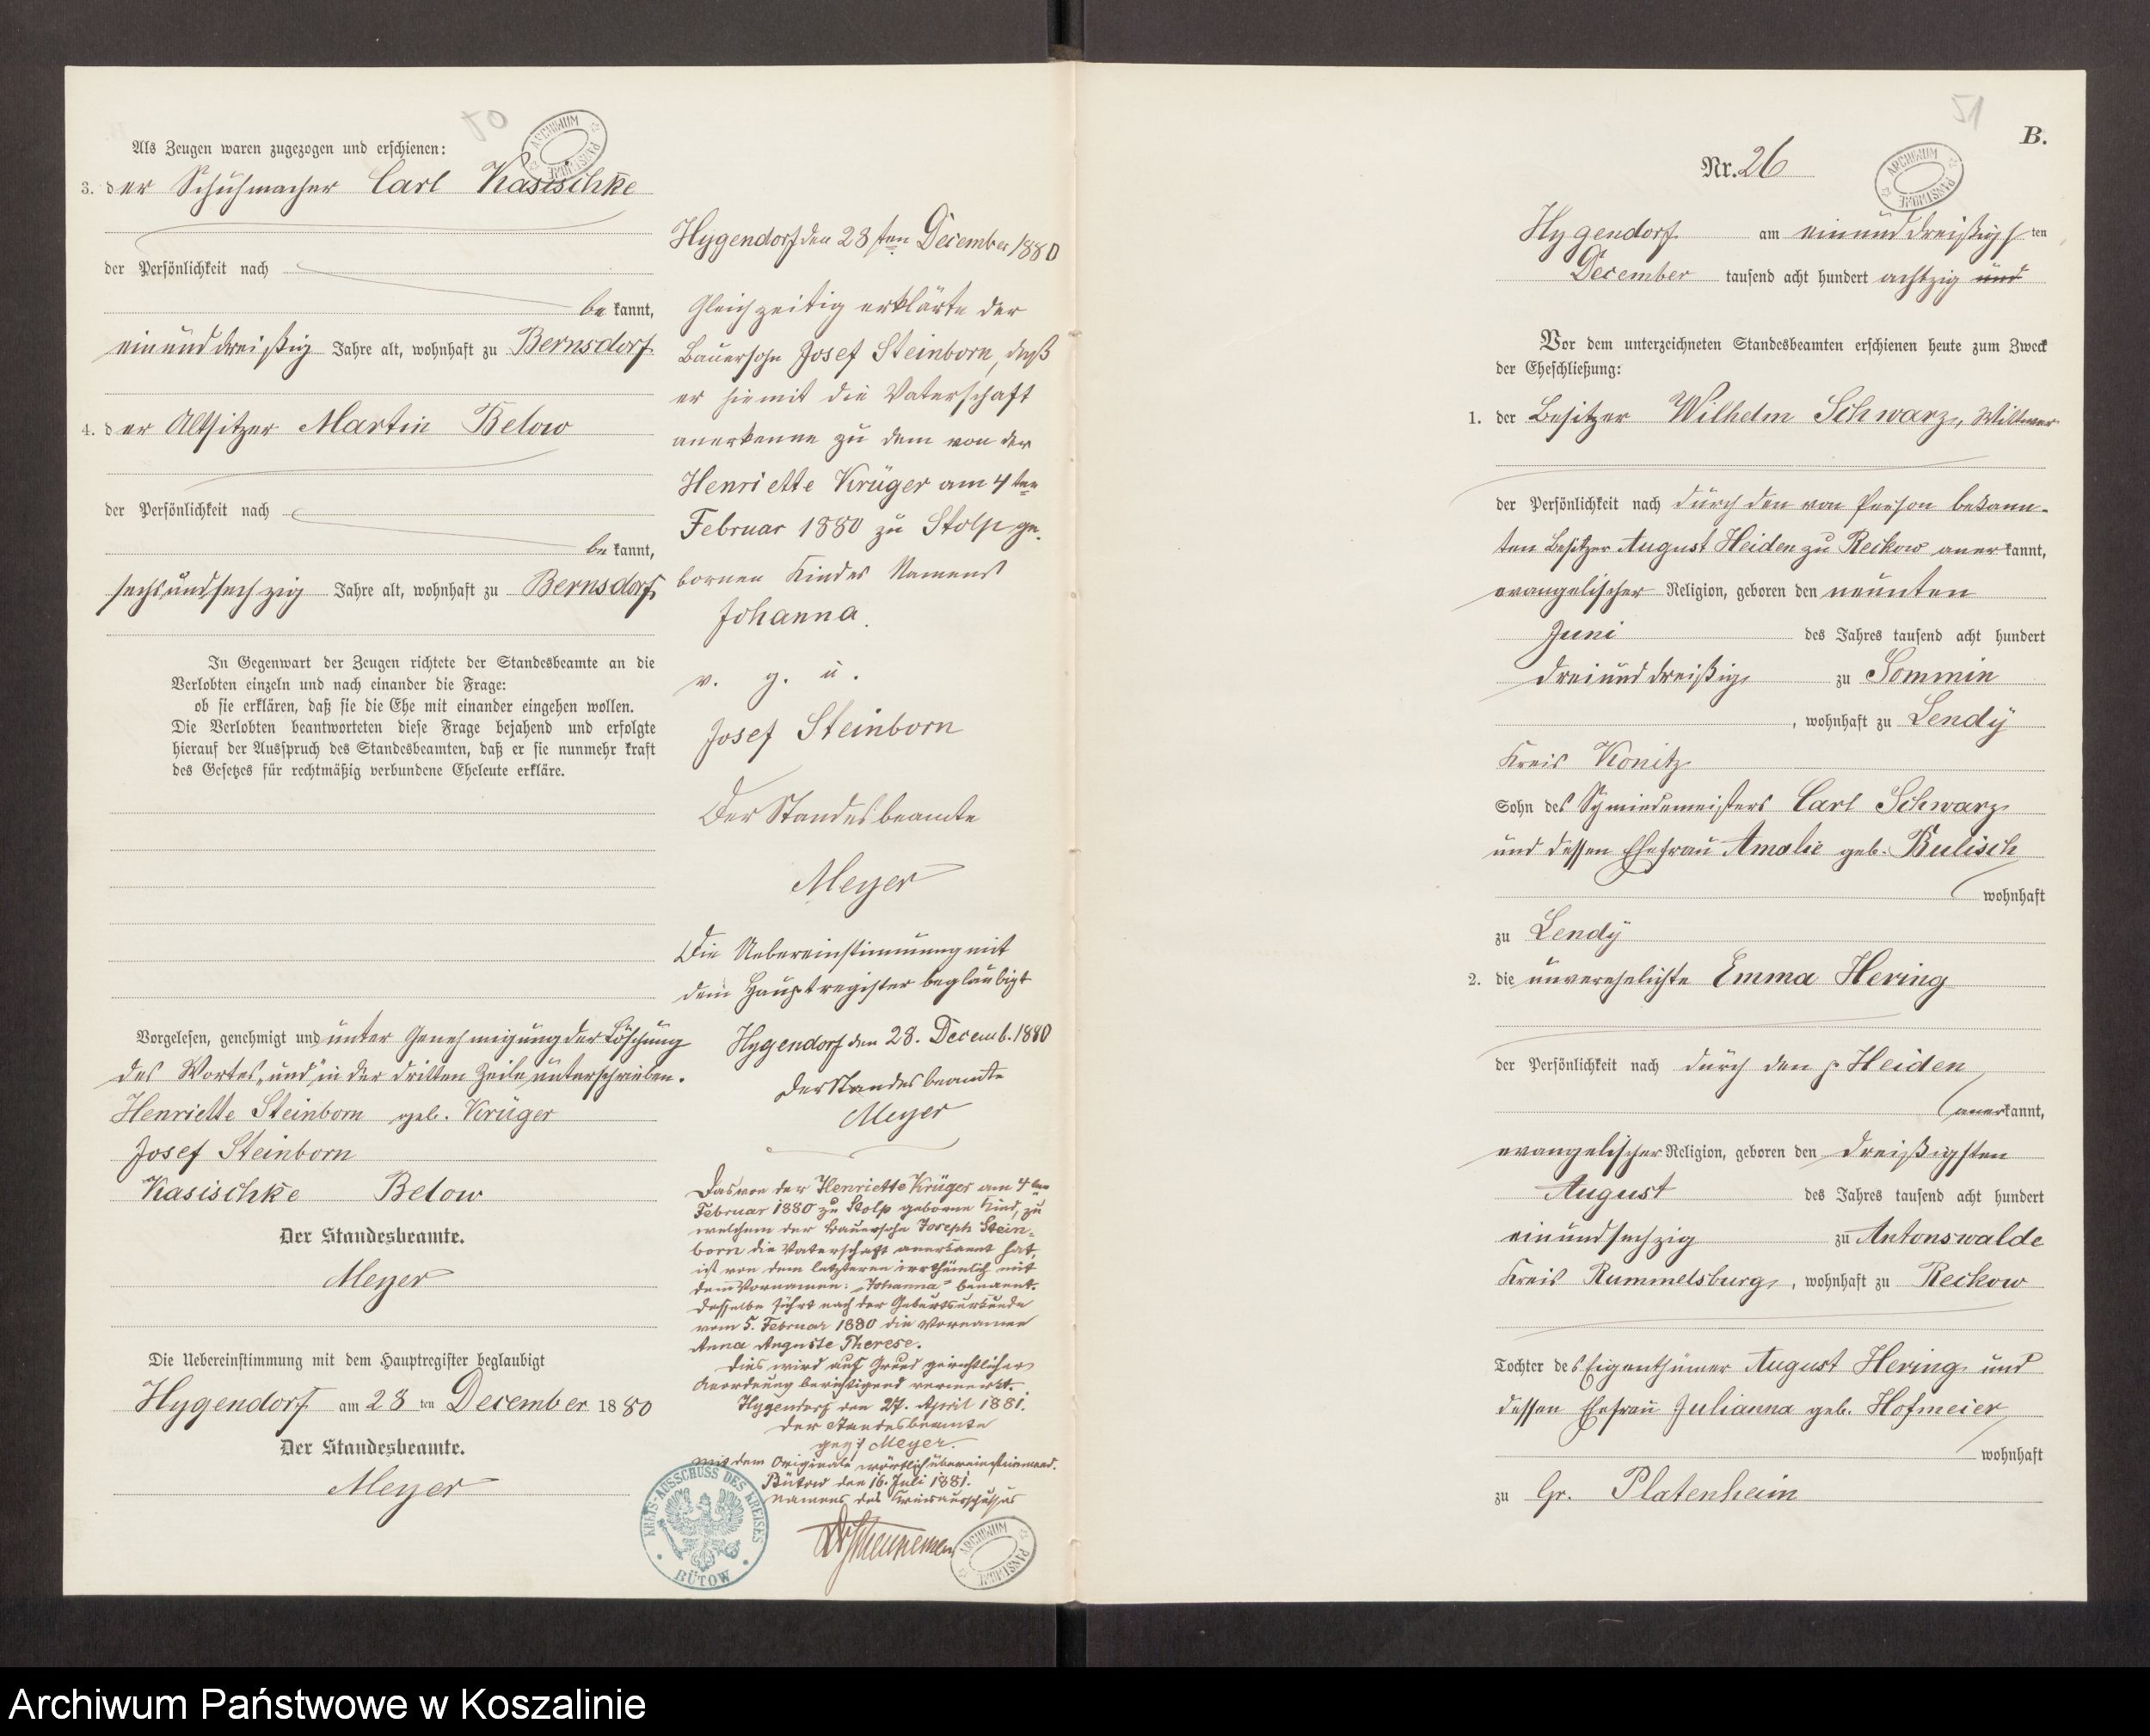 50
ARCHIWUM PAŃSTWOWE
Als Zeugen waren zugezogen und erschienen:
3. der Schuhmacher Carl Kasischke
der Persönlichkeit nach
be kannt,
einunddreißig Jahre alt, wohnhaft zu Bernsdorf
4. der Altsitzer Martin Below
der Persönlichkeit nach
be kannt,
sechsundsechzig Jahre alt, wohnhaft zu Bernsdorf
In Gegenwart der Zeugen richtete der Standesbeamte an die
Verlobten einzeln und nach einander die Frage:
ob sie erklären, daß sie die Ehe mit einander eingehen wollen.
Die Verlobten beantworteten diese Frage bejahend und erfolgte
hierauf der Ausspruch des Standesbeamten, daß er sie nunmehr kraft
des Gesetzes für rechtmäßig verbundene Eheleute erkläre.
Vorgelesen, genehmigt und unter Genehmigung der Löschung
des Wortes „und" in der dritten Zeile unterschrieben.
Henriette Steinborn geb. Krüger
Josef Steinborn
Kasischke Below
Der Standesbeamte.
Meyer
Die Uebereinstimmung mit dem Hauptregister beglaubigt
Hygendorf am 28 ten December 1880
Der Standesbeamte.
Meyer
Hygendorf den 28sten December 1880
Gleichzeitig erklärte der
Bauersohn Josef Steinborn, daß
er hiemit die Vaterschaft
anerkenne zu dem von der
Henriette Krüger am 4ten
Februar 1880 zu Stolp ge-
bornen Kindes Namens
Johanna.
v. g. u.
Josef Steinborn
Der Standesbeamte
Meyer
Die Uebereinstimmung mit
dem Hauptregister beglaubigt
Hygendorf den 28. Decemb. 1880
Der Standesbeamte
Meyer
Das von der Henriette Krüger am 4ten
Februar 1880 zu Stolp geborne Kind, zu
welchem der Bauersohn Joseph Stein-
born die Vaterschaft anerkannt hat,
ist von dem letzteren irrthümlich mit
dem Vornamen: „Johanna" benannt.
Dasselbe führt nach der Geburtsurkunde
vom 5. Februar 1880 die Vornamen
Anna Auguste Therese.
Dies wird auf Grund gerichtlicher
Anordnung berichtigend vermerkt.
Hygendorf den 27. April 1881.
Der Standesbeamte
gez. Meyer.
Mit dem Originale wörtlich übereinstimmend.
Bütow den 16. Juli 1881.
Namens des Kreisausschusses
KREIS-AUSSCHUSS DES KREISES BÜTOW
ARCHIWUM PAŃSTWOWE
51
B.
Nr. 26
ARCHIWUM PAŃSTWOWE
Hygendorf am einunddreißigsten
December tausend acht hundert achtzig und
Vor dem unterzeichneten Standesbeamten erschienen heute zum Zweck
der Eheschließung:
1. der Besitzer Wilhelm Schwarz, Wittwer
der Persönlichkeit nach durch den von Person bekann-
ten Besitzer August Heiden zu Reckow anerkannt,
evangelischer Religion, geboren den neunten
Juni des Jahres tausend acht hundert
dreiunddreißig zu Sommin
, wohnhaft zu Lendy
Kreis Konitz
Sohn des Schmiedemeisters Carl Schwarz
und dessen Ehefrau Amalie geb. Bulisch
wohnhaft
zu Lendy
2. die unverehelichte Emma Hering
der Persönlichkeit nach durch den p Heiden
anerkannt,
evangelischer Religion, geboren den dreißigsten
August des Jahres tausend acht hundert
einundsechzig zu Antonswalde
Kreis Rummelsburg, wohnhaft zu Reckow
Tochter des Eigenthümer August Hering und
dessen Ehefrau Julianna geb. Hofmeier
wohnhaft
zu Gr. Platenheim
Archiwum Państwowe w Koszalinie